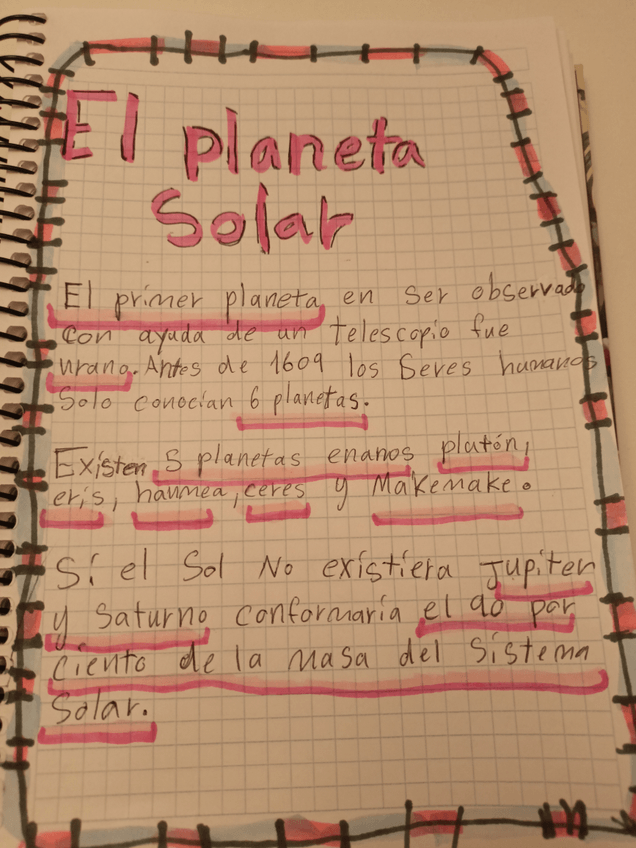 El planeta
Solar
El primer planeta en ser observado
con ayuda de un telescopio fue
urano. Antes de 1609 los Seres humanos
Solo conocían 6 planetas.
Existen 5 planetas enanos plutón,
eris, haumea, ceres y Makemake.
Si el Sol No existiera Jupiter
y Saturno conformaría el 90 por
ciento de la masa del Sistema
Solar.